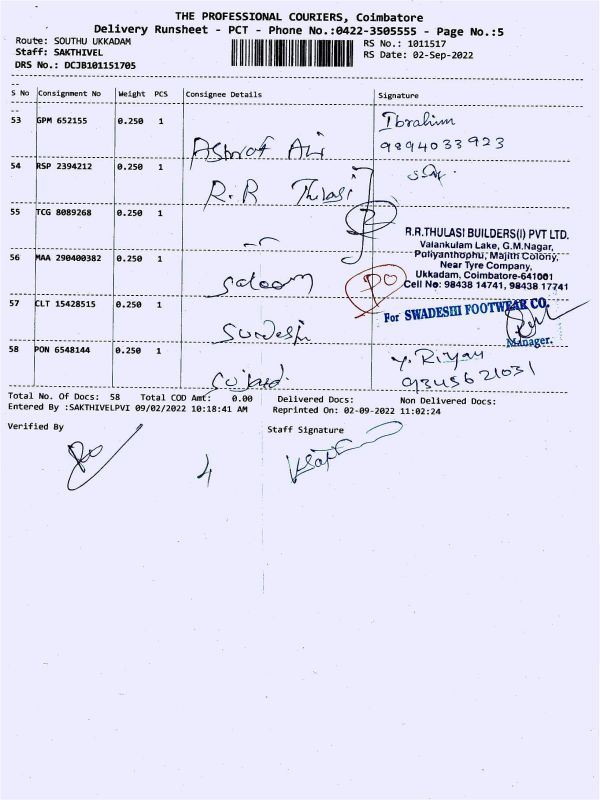 THE PROFESSIONAL COURIERS, Coimbatore
Delivery Runsheet - PCT - Phone No.:0422-3505555 - Page No.:5
Route: SOUTHU UKKADAM
RS No.: 1011517
Staff: SAKTHIVEL
RS Date: 02-Sep-2022
DRS No.: DCJB101151705
S No Consignment No Weight PCS Consignee Details Signature
53 GPM 652155 0.250 1 Ashraf Ali Ibrahim
9894033923
54 RSP 2394212 0.250 1 R.R Thulasi
55 TCG 8089268 0.250 1 —"—
R.R.THULASI BUILDERS(I) PVT LTD.
Valankulam Lake, G.M.Nagar,
Pullyanthophu, Majith Colony,
Near Tyre Company,
Ukkadam, Coimbatore-641001
Cell No: 98438 14741, 98438 17741
56 MAA 290400382 0.250 1 saloom PO
57 CLT 15428515 0.250 1 Swadeshi
For SWADESHI FOOTWEAR CO.
Manager.
58 PON 6548144 0.250 1
9345621031
Total No. Of Docs: 58 Total COD Amt: 0.00 Delivered Docs: Non Delivered Docs:
Entered By :SAKTHIVELPVI 09/02/2022 10:18:41 AM Reprinted On: 02-09-2022 11:02:24
Verified By Staff Signature
4